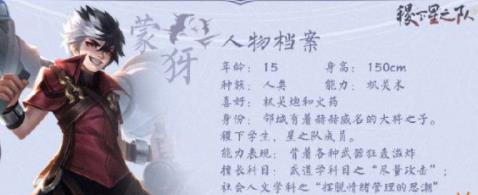 稷下星之队
蒙犽
人物档案
年龄：15 身高：150cm
种族：人类 能力：机关术
喜好：机关炮和火药
身份：邻域有着赫赫威名的大将之子。
稷下学生，星之队成员。
能力表现：背着各种武器狂轰滥炸
擅长科目：武道学科目之“尽量攻击”；
社会人文学科之“摆脱情绪管理的思潮”